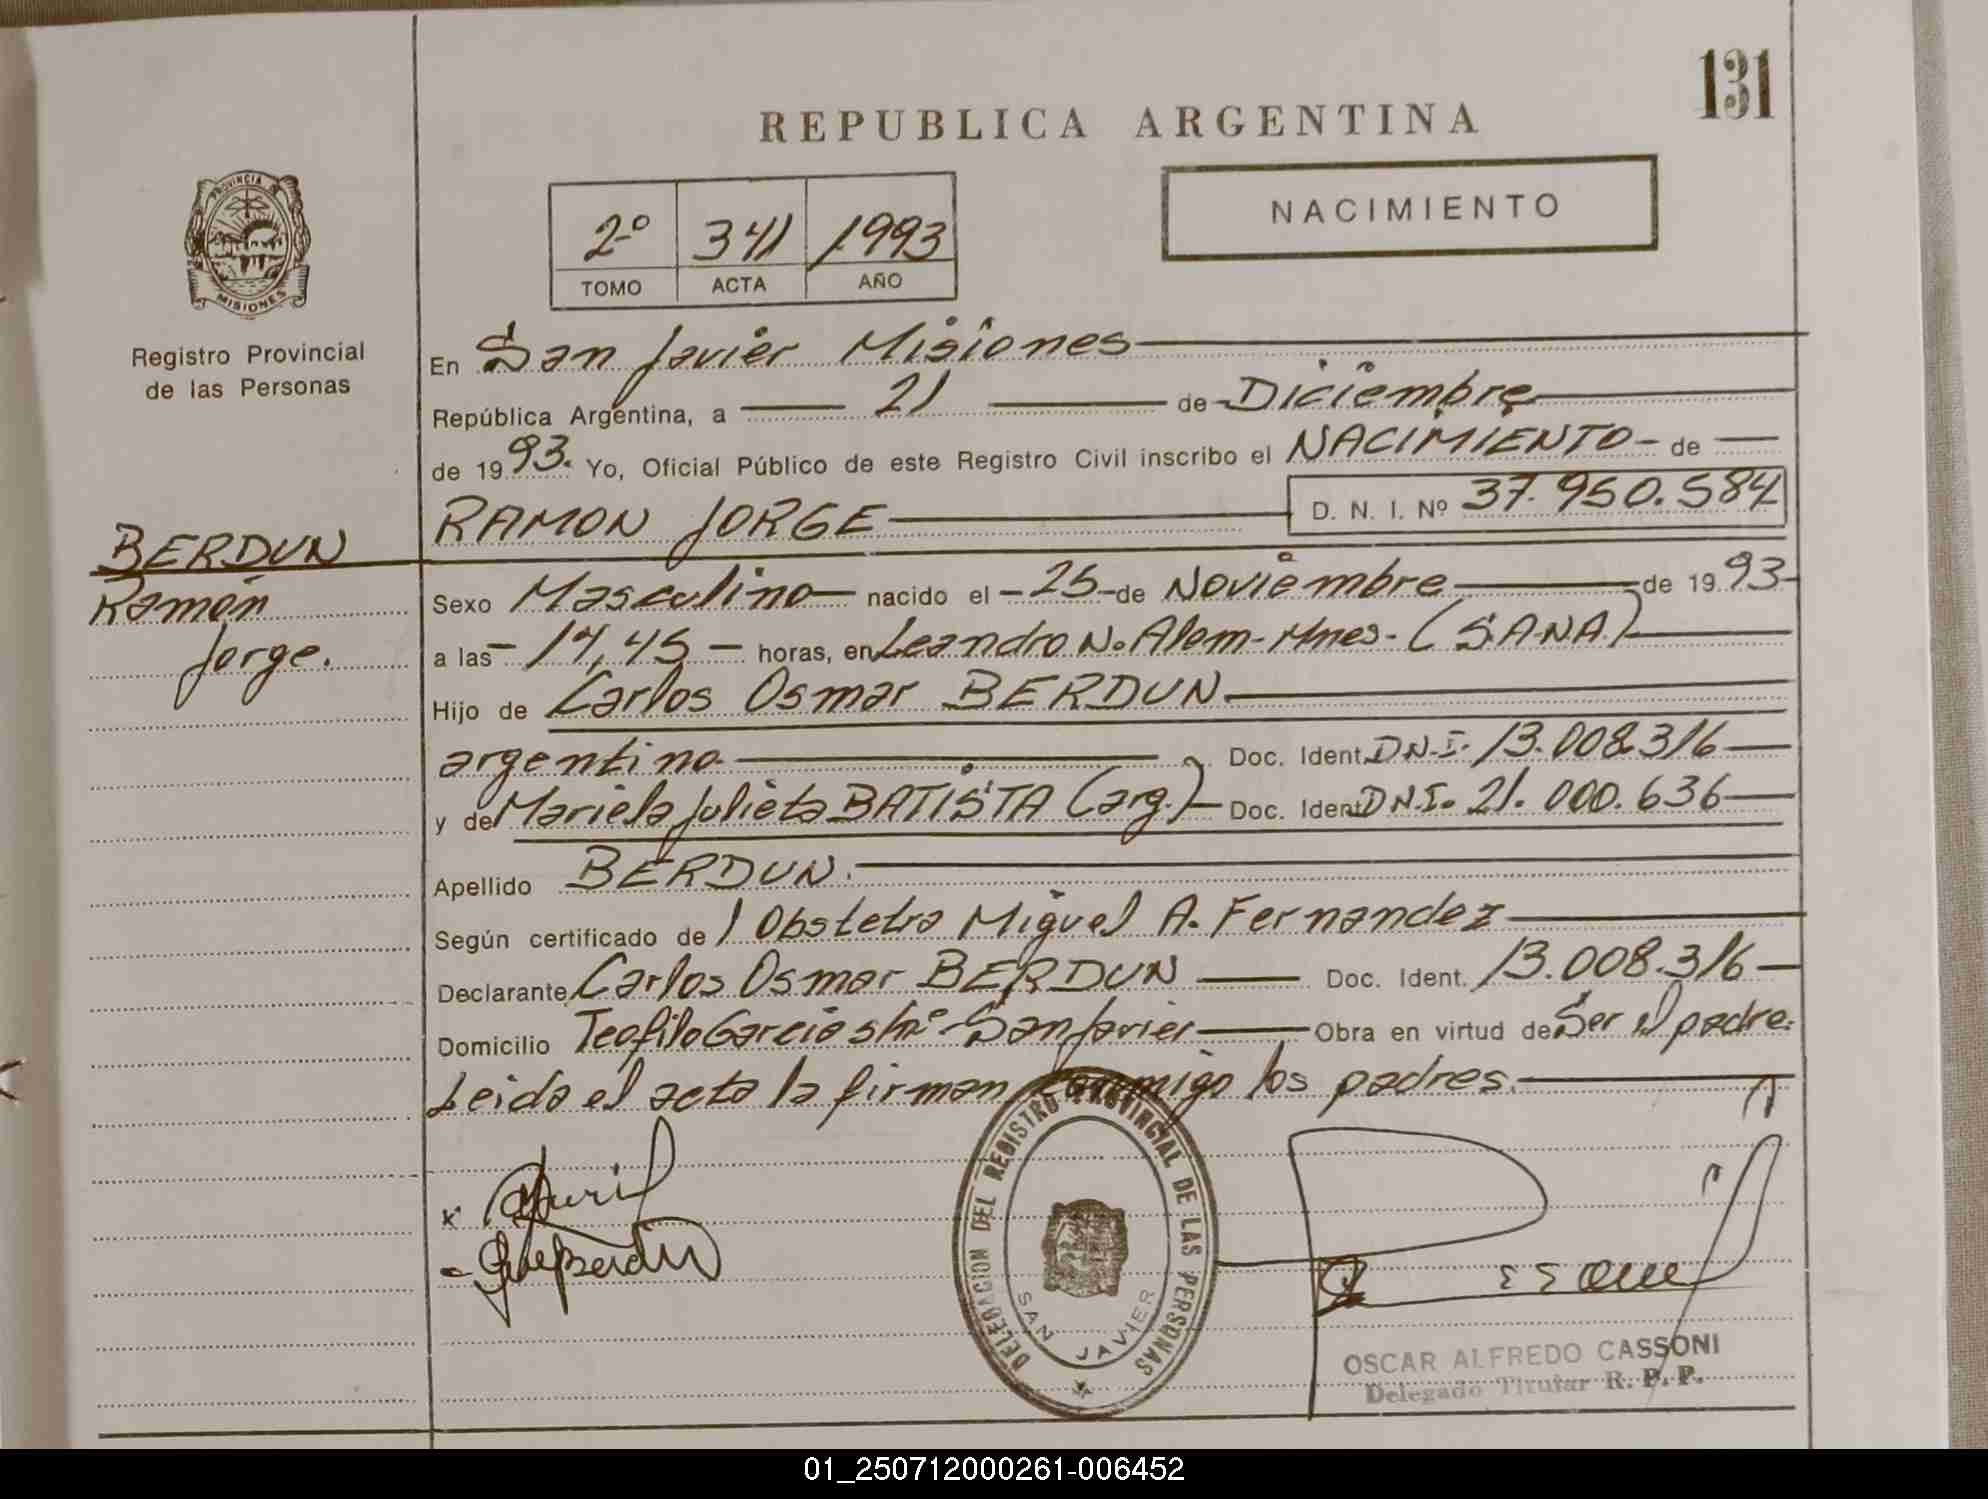 131
REPUBLICA ARGENTINA
NACIMIENTO
2º 341 1993
TOMO ACTA AÑO
PROVINCIA DE
MISIONES
Registro Provincial
de las Personas
En San Javier Misiones
República Argentina, a 21 de Diciembre
de 1993. Yo, Oficial Público de este Registro Civil inscribo el NACIMIENTO de
RAMON JORGE D. N. I. Nº 37.950.584
BERDUN
Ramón
Jorge.
Sexo Masculino nacido el 25 de Noviembre de 1993
a las 17,45 horas, en Leandro N. Alem - Mnes - (S.A.N.A.)
Hijo de Carlos Osmar BERDUN
argentino Doc. Ident. D.N.I. 13.008.316
y de Mariela Julieta BATISTA (arg.) Doc. Ident. D.N.I. 21.000.636
Apellido BERDUN.
Según certificado de l Obstetra Miguel A. Fernandez
Declarante Carlos Osmar BERDUN Doc. Ident. 13.008.316
Domicilio Teofilo Garcia s/nº - San Javier Obra en virtud de Ser el padre.
Leida el acta la firman conmigo los padres.
DELEGACION DEL REGISTRO PROVINCIAL DE LAS PERSONAS
SAN JAVIER
OSCAR ALFREDO CASSONI
Delegado Titular R. P. P.
01_250712000261-006452